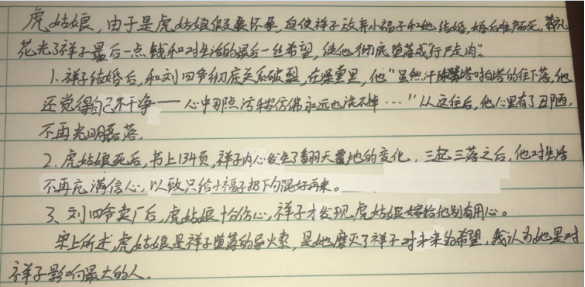 虎姑娘,由于是虎姑娘假装怀孕,迫使祥子放弃小福子和她结婚,婚后难产而死,葬礼
花光了祥子最后一点钱和对生活的最后一丝希望,使他彻底堕落成"行尸走肉"。
1.祥子结婚后,和刘四爷彻底关系破裂,在澡堂里,他"虽然汗珠劈嗒啪嗒的往下落,他
还觉得自己不干净——心中那点污秽仿佛永远也洗不掉…"从这往后,他心里有了丑陋,
不再光明磊落.
2.虎姑娘死后,书上134页,祥子内心发生了翻天覆地的变化,三起三落之后,他对生活
不再充满信心,以致只给小福子扔下句混好再来。
3、刘四爷卖厂后,虎姑娘十分伤心,祥子才发现,虎姑娘嫁给他别有用心。
综上所述,虎姑娘是祥子堕落的导火索,是她磨灭了祥子对未来的希望,我认为她是对
祥子影响最大的人.